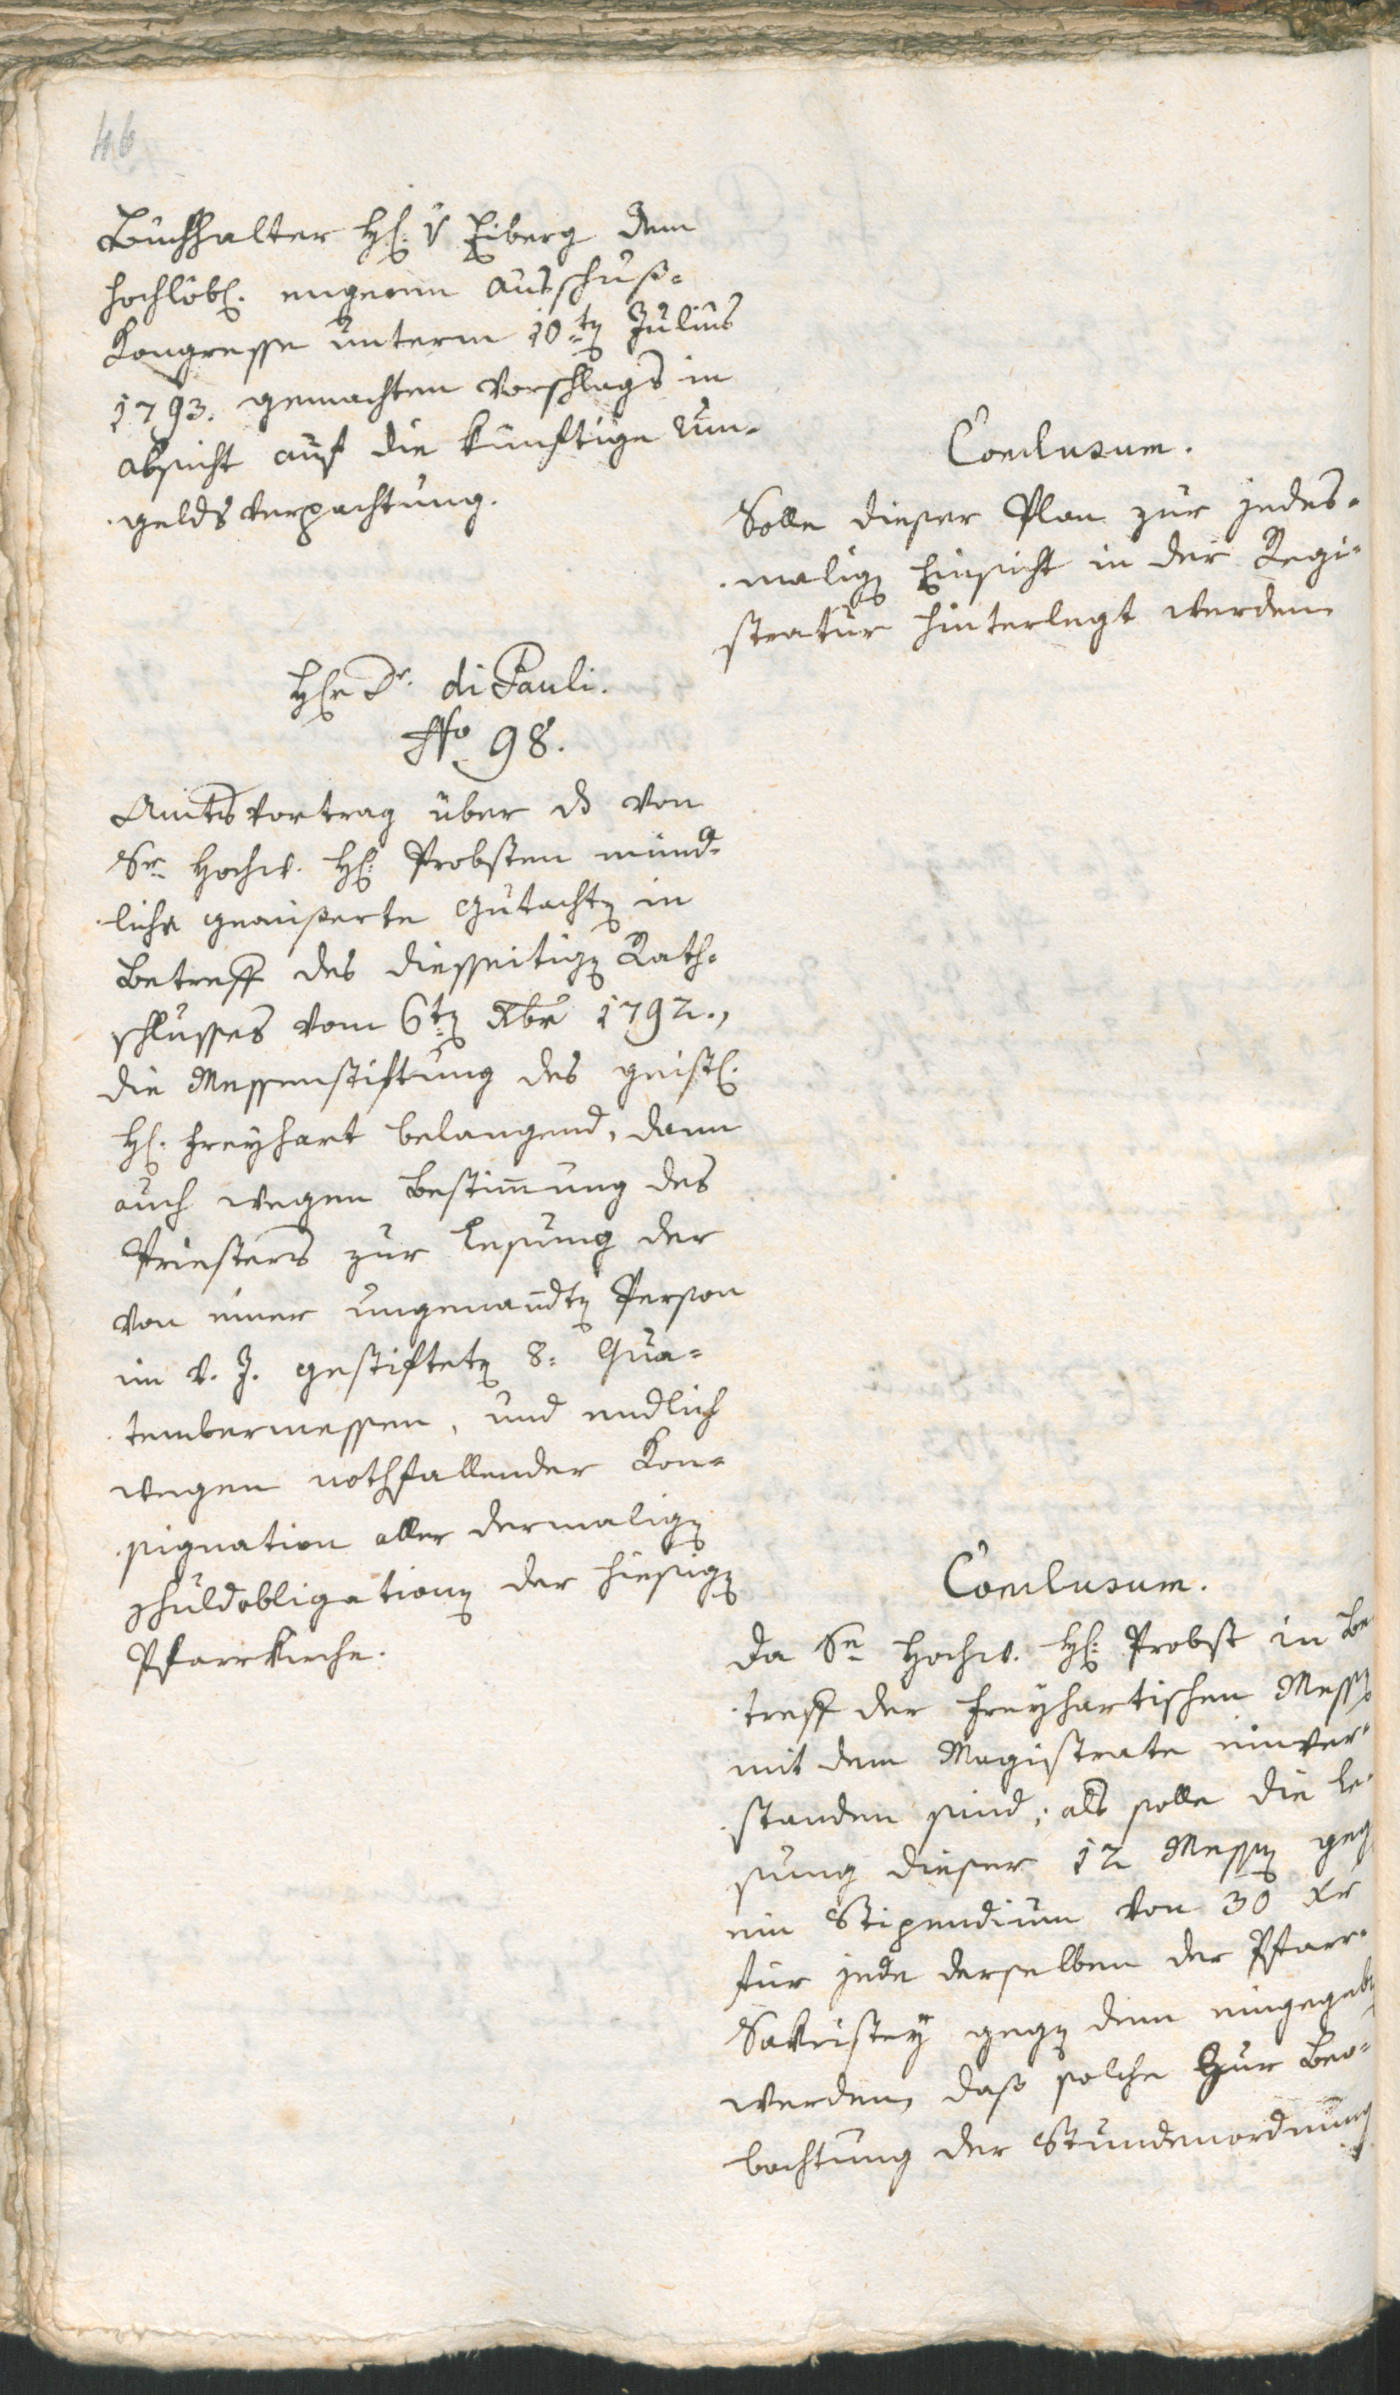 46
Buchhalter H: v Eiberg dem
hochlöbl. engeren Ausschuß-
Kongresse unterm 10ten Julius
1793. gemachten Vorschlags in
absicht auf die künftige Um-
geldsverpachtung.
Conclusum.
Solle dieser Plan zur jedes-
malig Einsicht in der Regi-
stratur hinterlegt werden
Her Dr. di Pauli.
No 98.
Amtsvortrag über d von
Sr Hochw. H: Probsten münd-
lich geäußerte Gutachten in
Betreff des diesseitigen Rath-
schlusses vom 6ten Xber 1792.,
die Messenstiftung des geistl.
H: Freyhart belangend, dann
auch wegen Bestim̄ung des
Priesters zur Lesung der
von einer ungenan̄dten Person
im v. J. gestifteten 8: Qua-
tembermessen, und endlich
wegen nothfallender Kon-
signation aller dermaligen
Schuldobligationen der hiesigen
Pfarrkirche.
Conclusum.
Da Se Hochw. H: Probst in Be
treff der Freyhartischen Messen
mit dem Magistrate einver-
standen sind; als solle die Le-
sung dieser 12 Messen geg
ein Stipendium von 30 xr
für jede derselben der Pfarr-
Sakristey gegen dem eingegeben
werden, daß solche zur Beo-
bachtung der Stundenordnung